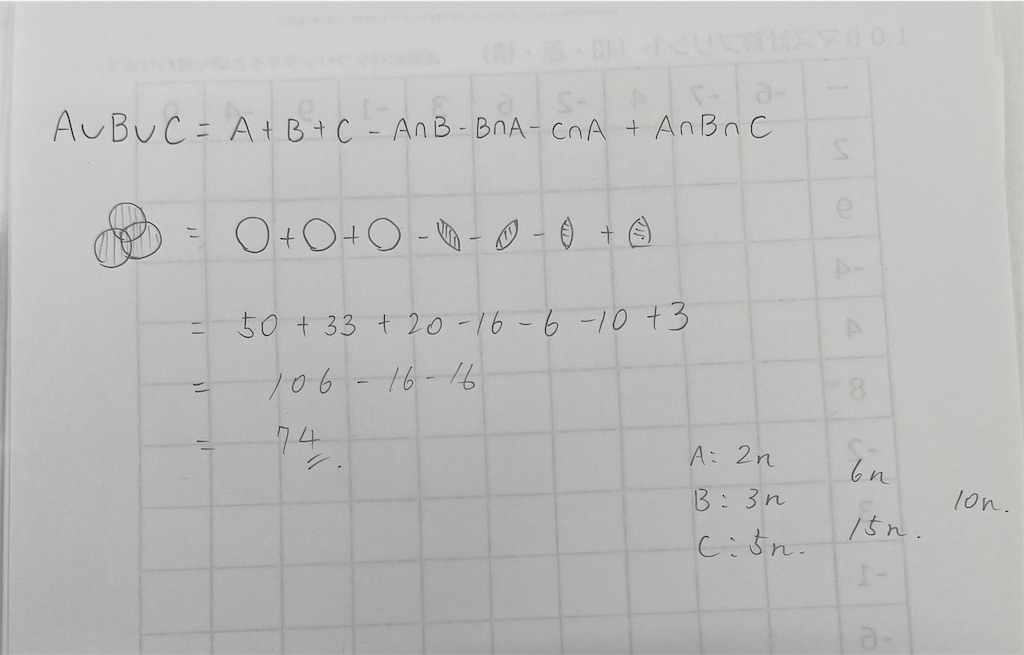 A∪B∪C = A + B + C - A∩B - B∩A - C∩A + A∩B∩C
= ○ + ○ + ○ - - - +
= 50 + 33 + 20 - 16 - 6 - 10 + 3
= 106 - 16 - 16
= 74.
A: 2n 6n
B: 3n 10n.
C: 5n. 15n.